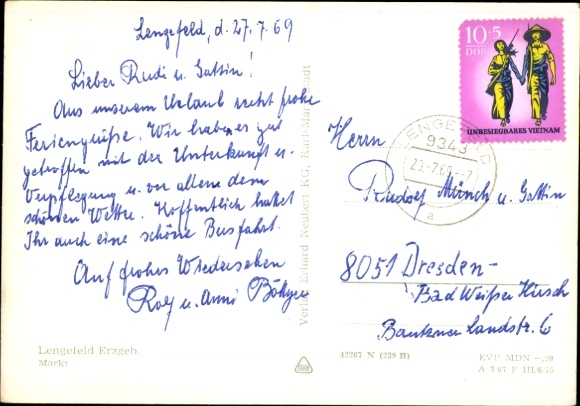 Lengefeld, d. 27.7.69
Lieber Rudi u. Gattin!
Aus unserem Urlaub recht frohe
Feriengrüße. Wir haben es gut
getroffen mit der Unterkunft u.
Verpflegung u. vor allem dem
schönen Wetter. Hoffentlich hattet
Ihr auch eine schöne Busfahrt.
Auf frohes Wiedersehen
Rolf u. Anni
Lengefeld Erzgeb.
Markt
Verlag Erhard Neubert KG, Karl-Marx-Stadt
10+5
DDR
UNBESIEGBARES VIETNAM
LENGEFELD
9343
a
Herrn
Rudolf Münch u. Gattin
8051 Dresden-
Bad Weißer Hirsch
Bautzner Landstr. 6
42267 N (239 B)
EVP MDN -,20
A 3/67 F III/6/15